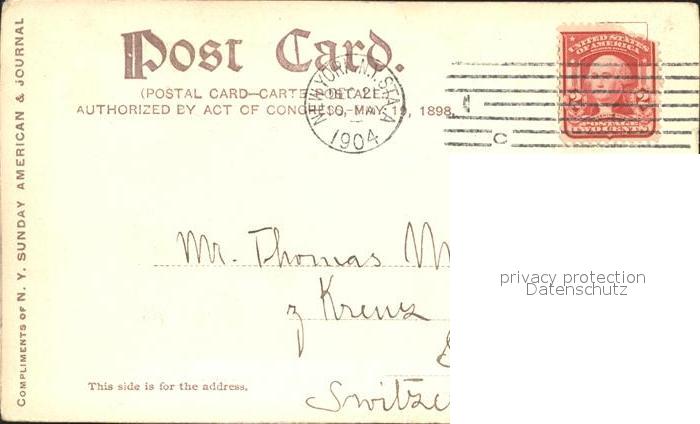 Post Card.
(POSTAL CARD—CARTE POSTALE)
AUTHORIZED BY ACT OF CONGRESS, MAY 19, 1898.
COMPLIMENTS OF N. Y. SUNDAY AMERICAN & JOURNAL
NEW YORK, N.Y. STA. A
1904
C
UNITED STATES
OF AMERICA
2 2
POSTAGE
TWO CENTS
Mr. Thomas M
z Kreuz
Switze
This side is for the address.
privacy protection
Datenschutz